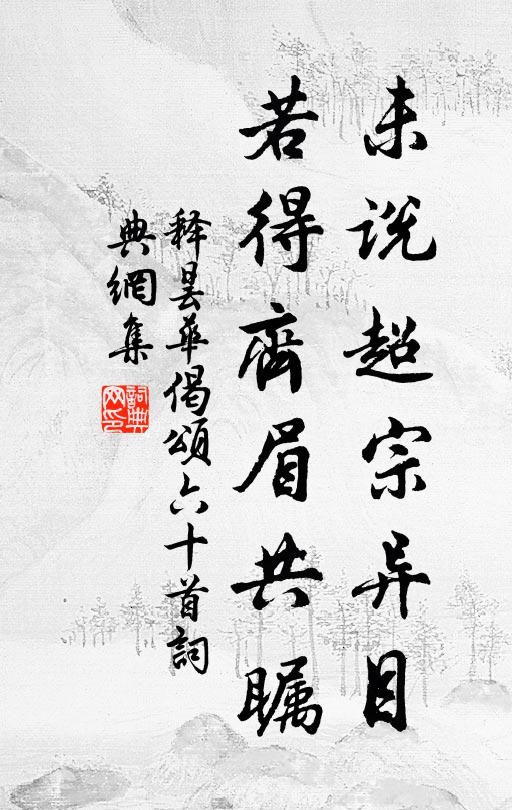 未说超宗异目
若得齊眉共瞩
释昙华偈颂六十首詞
典網集
詞典網印